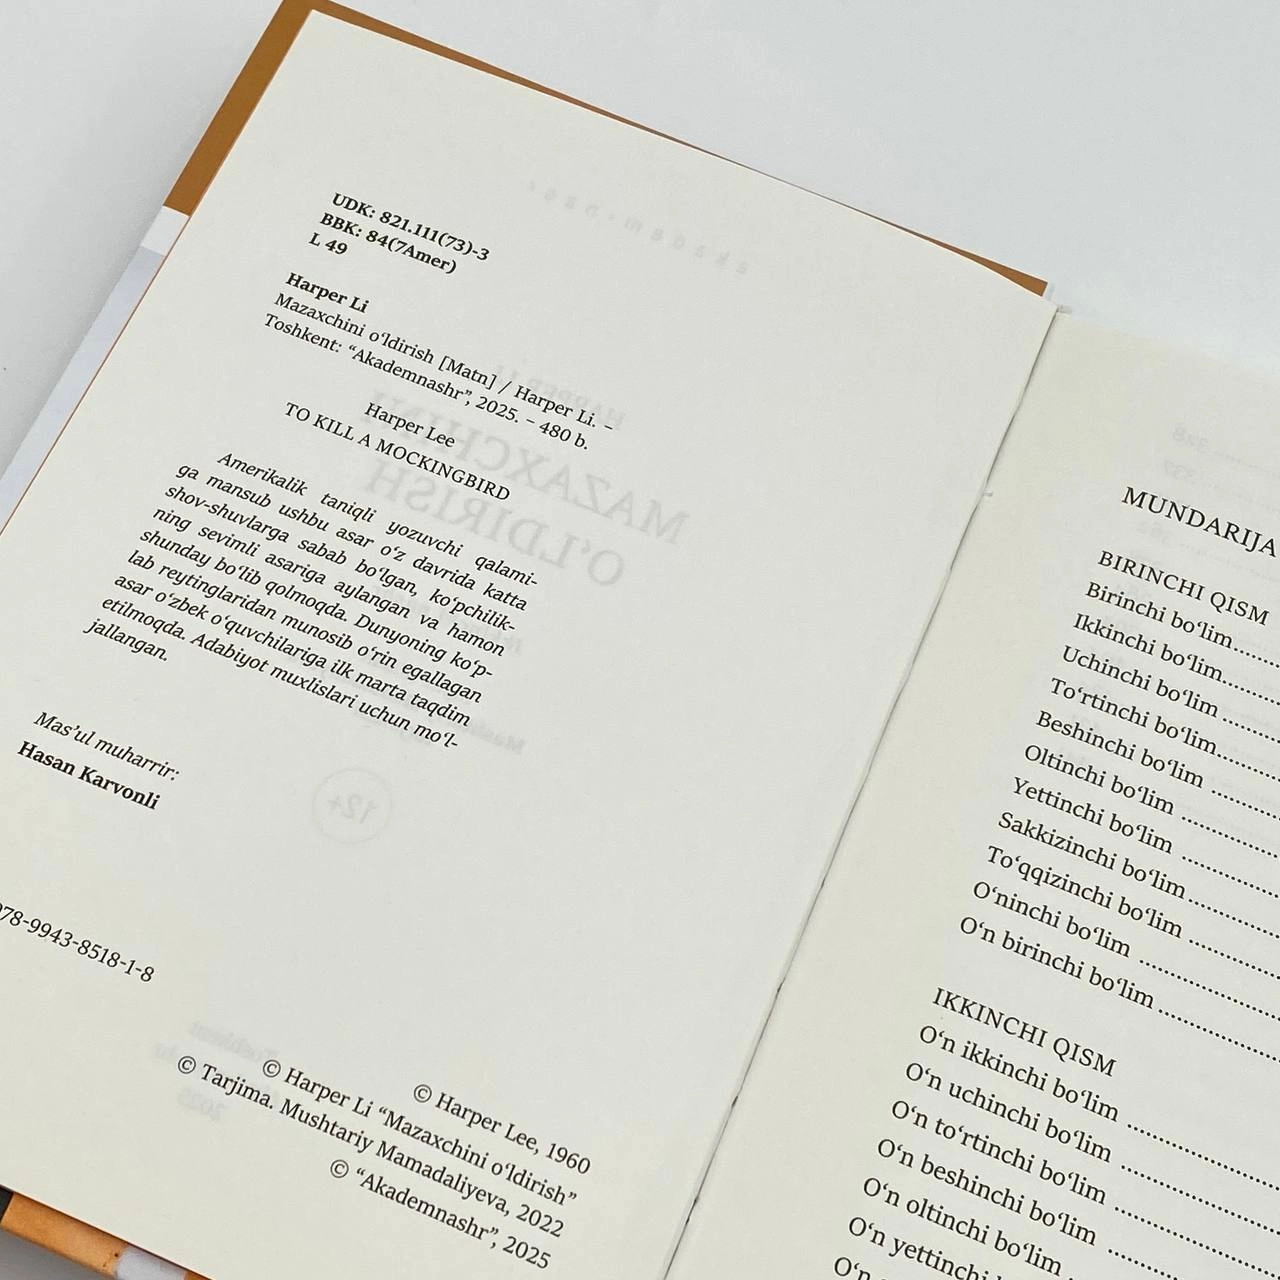 UDK: 821.111(73)-3
BBK: 84(7Amer)
L 49
Harper Li
Mazaxchini o‘ldirish [Matn] / Harper Li. –
Toshkent: “Akademnashr”, 2025. – 480 b.
Harper Lee
TO KILL A MOCKINGBIRD
Amerikalik taniqli yozuvchi qalami-
ga mansub ushbu asar o‘z davrida katta
shov-shuvlarga sabab bo‘lgan, ko‘pchilik-
ning sevimli asariga aylangan va hamon
shunday bo‘lib qolmoqda. Dunyoning ko‘p-
lab reytinglaridan munosib o‘rin egallagan
asar o‘zbek o‘quvchilariga ilk marta taqdim
etilmoqda. Adabiyot muxlislari uchun mo‘l-
jallangan.
Mas’ul muharrir:
Hasan Karvonli
978-9943-8518-1-8
© Harper Lee, 1960
© Harper Li “Mazaxchini o‘ldirish”
© Tarjima. Mushtariy Mamadaliyeva, 2022
© “Akademnashr”, 2025
MUNDARIJA
BIRINCHI QISM
Birinchi bo‘lim........
Ikkinchi bo‘lim........
Uchinchi bo‘lim ........
To‘rtinchi bo‘lim........
Beshinchi bo‘lim ........
Oltinchi bo‘lim ........
Yettinchi bo‘lim ........
Sakkizinchi bo‘lim........
To‘qqizinchi bo‘lim ........
O‘ninchi bo‘lim ........
O‘n birinchi bo‘lim........
IKKINCHI QISM
O‘n ikkinchi bo‘lim ........
O‘n uchinchi bo‘lim ........
O‘n to‘rtinchi bo‘lim ........
O‘n beshinchi bo‘lim ........
O‘n oltinchi bo‘lim ........
O‘n yettinchi bo‘lim
O‘n